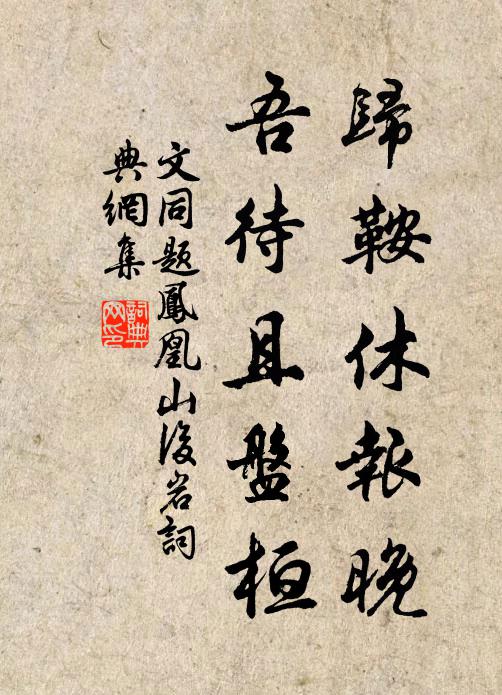 歸鞍休報晚
吾待且盤桓
文同題鳳凰山後岩詞
典網集
詞典網印